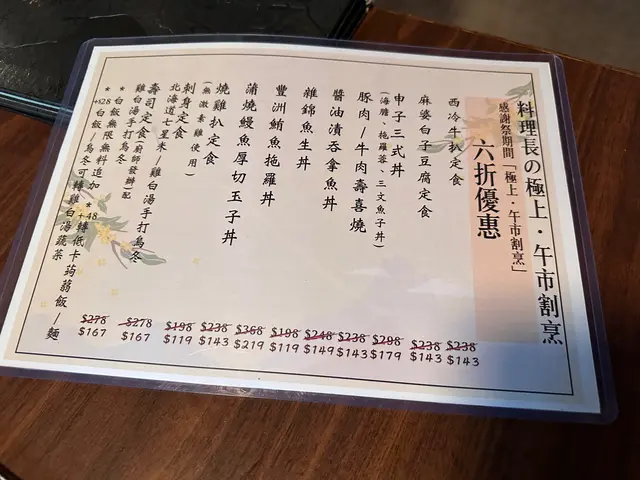 料理長の極上・午市割烹
感謝祭期間「極上・午市割烹」
六折優惠
西冷牛扒定食 $238 $143
麻婆白子豆腐定食 $238 $143
申子三式丼 $298 $179
(海膽、拖羅蓉、三文魚子丼)
豚肉/牛肉壽喜燒 $238 $143
醬油漬吞拿魚丼 $248 $149
雜錦魚生丼 $198 $119
豐洲鮪魚拖羅丼 $368 $219
蒲燒鰻魚厚切玉子丼 $238 $143
燒雞扒定食 $198 $119
(無激素雞使用)
刺身定食 $278 $167
北海道七星米/雞白湯手打烏冬
壽司定食(廚師發辦)配 $278 $167
雞白湯手打烏冬
* 白飯無限無料追加 * +48轉低卡蒟蒻飯/麵
* +$28白飯/烏冬可轉雞白湯蔬菜